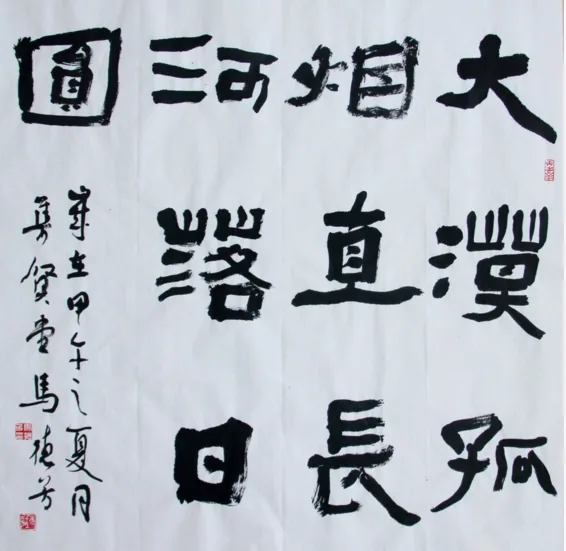 大漠孤
烟直長
河落日
圓
歲在甲午之夏月
集賢堂馬德芳